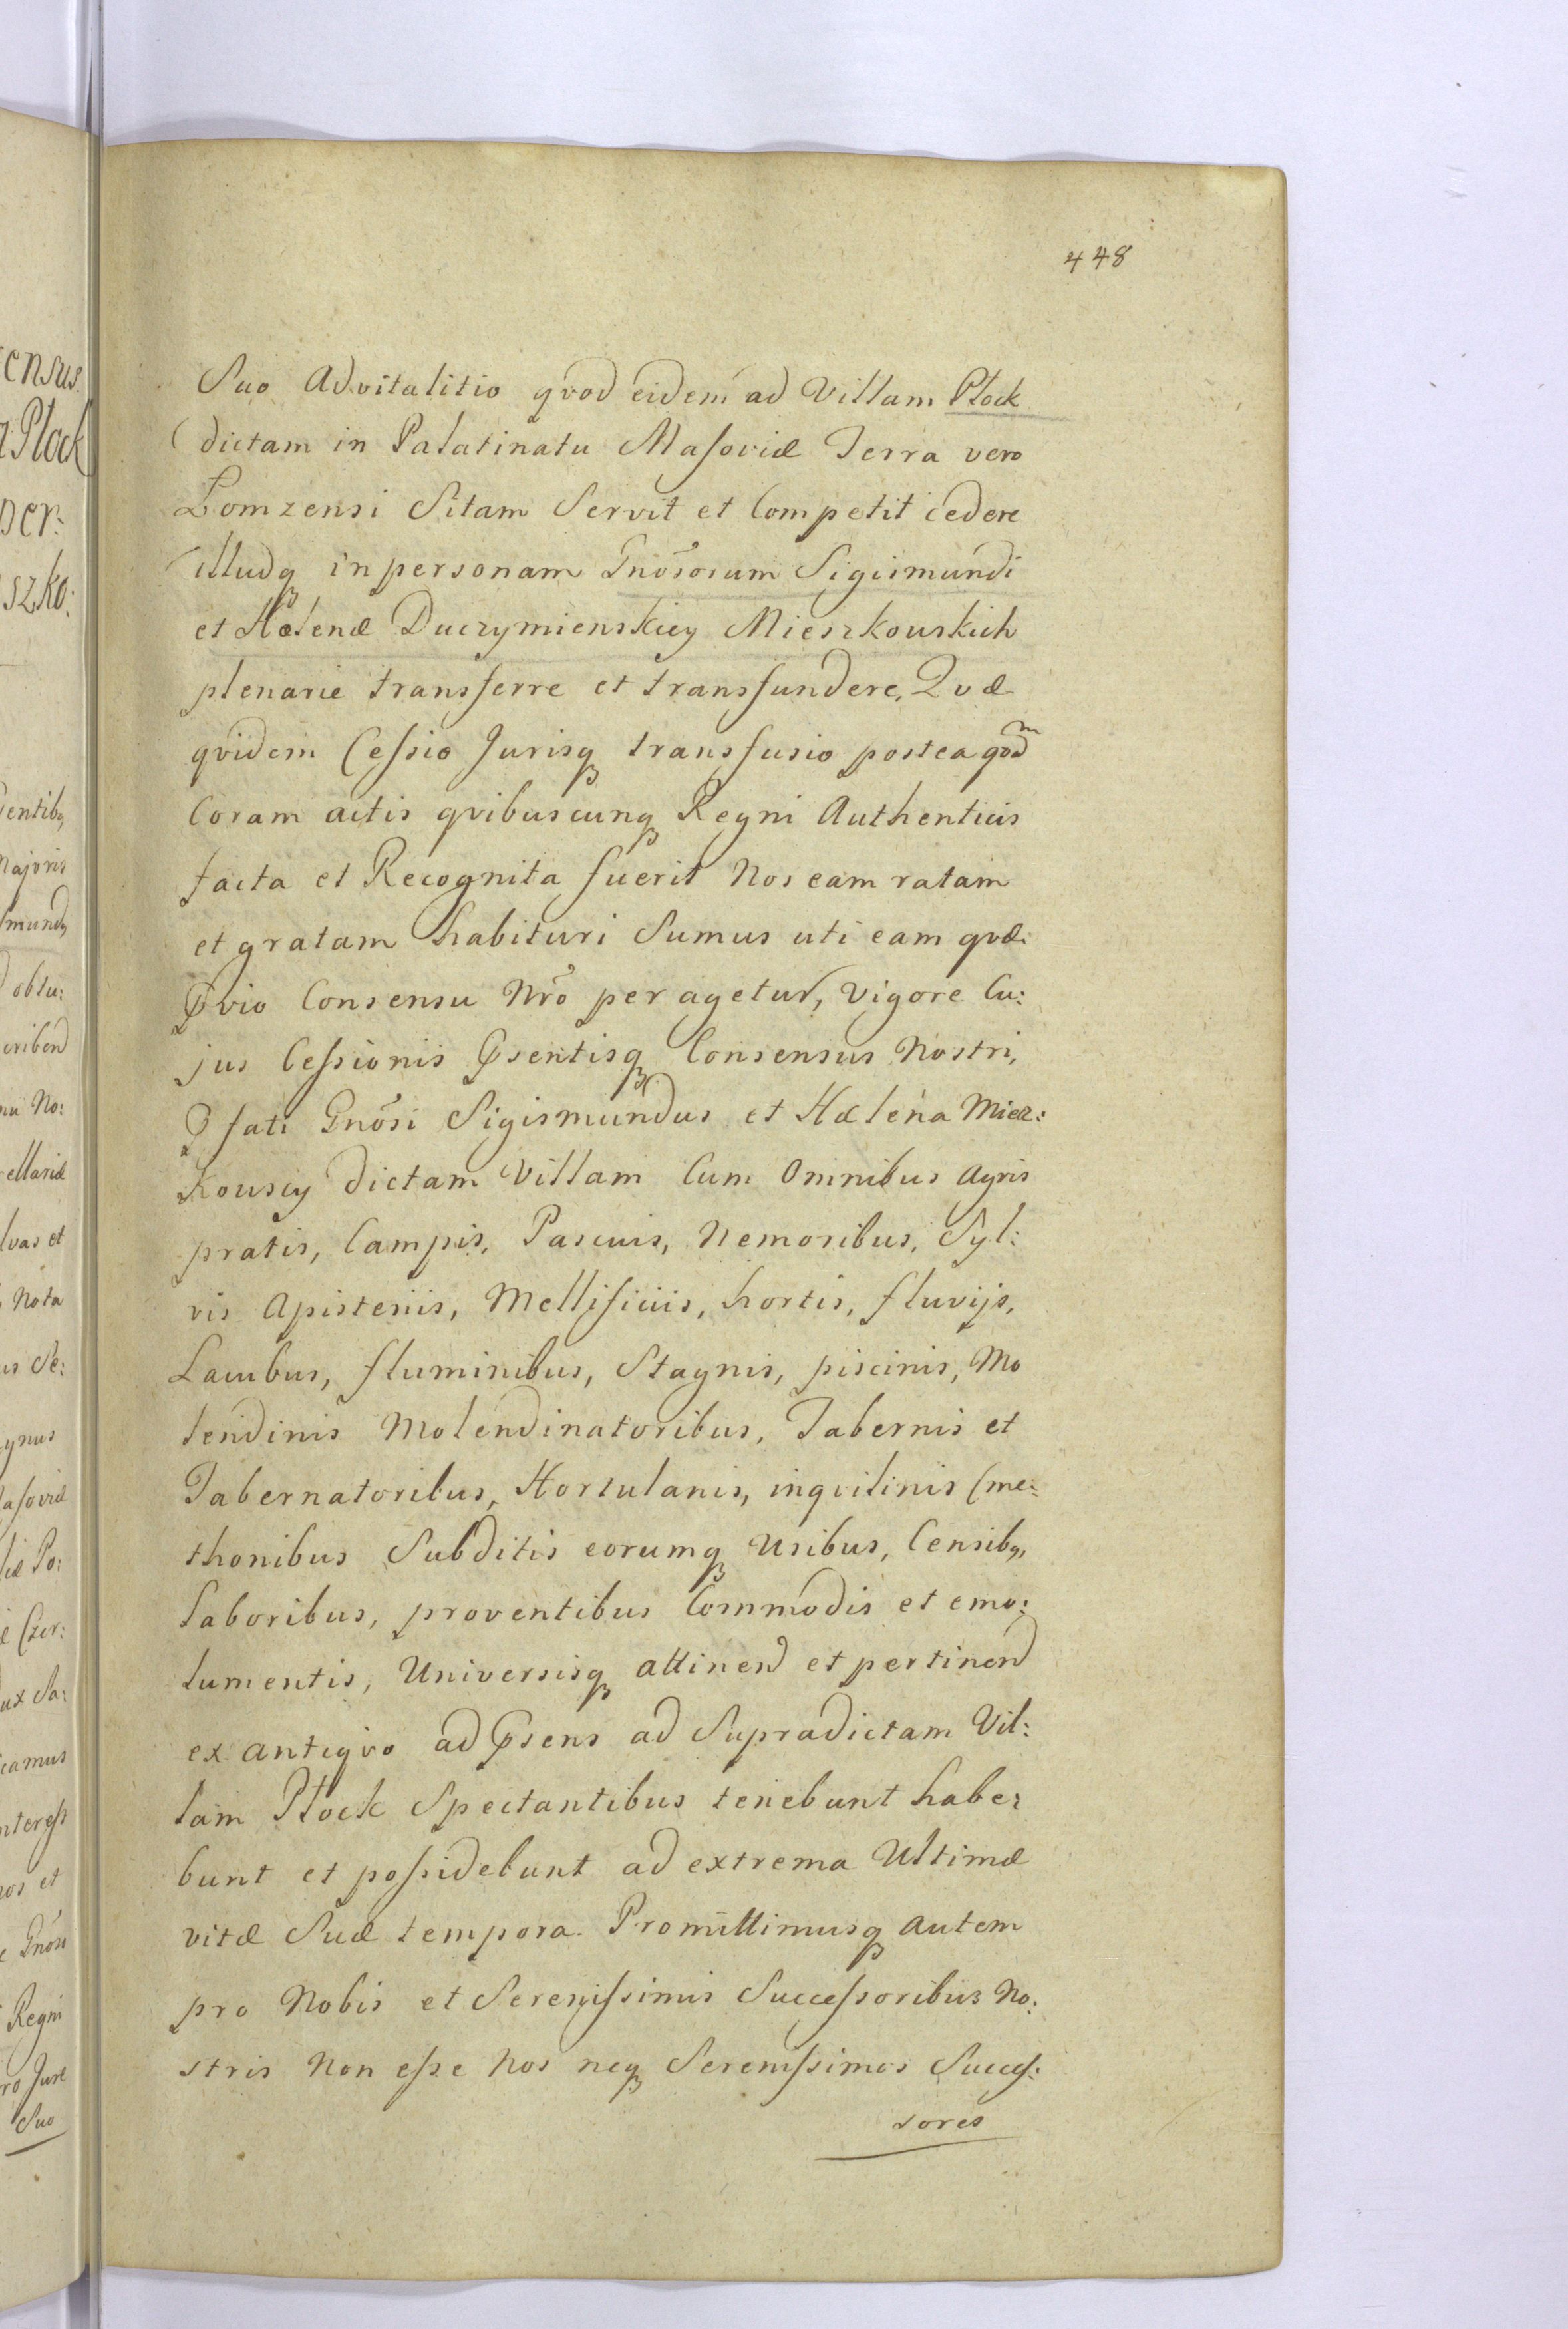 448
Suo Advitalitio qvod eidem ad Villam Płock
dictam in Palatinatu Masoviæ Terra vero
Łomzensi Sitam Servit et Competit cedere
illudq in personam Gnõsorum Sigismundi
et Hælenæ Duczymienskiey Mieszkouskich
plenarie transferre et transfundere, Qvæ
qvidem Cessio Jurisq transfusio postea qvodm
Coram actis qvibuscunq Regni Authenticis
facta et Recognita fuerit Nos eam ratam
et gratam habituri Sumus uti eam qvæ
Pvio Consensu Nrõ peragetur, Vigore Cu:
jus Cessionis Psentisq Consensus Nostri,
Pfati Gnõsi Sigismundus et Hælena Miesz:
Kouscy dictam Villam Cum Omnibus Agris
pratis, Campis, Pascuis, Nemoribus, Syl:
vis Apisteriis, Mellificiis, hortis, fluvijs,
Lacubus, fluminibus, Stagnis, piscinis, Mo
lendinis Molendinatoribus, Tabernis et
Tabernatoribus, Hortulanis, inqvilinis Cme:
thonibus Subditis eorumq Usibus, Censibq,
Laboribus, proventibus Commodis et emo:
lumentis, Universisq attinend et pertinend
ex antiqvo ad Psens ad Supradictam Vil:
lam Płock Spectantibus tenebunt habe:
bunt et possidebunt ad extrema Ultimæ
vitæ Suæ tempora. Promittimusq autem
pro Nobis et Serenissimis Successoribus No:
stris Non esse Nos neq Serenissimos Succes:
sores